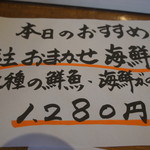 本日のおすすめ
おまかせ海鮮
種の鮮魚・海鮮
1,280円